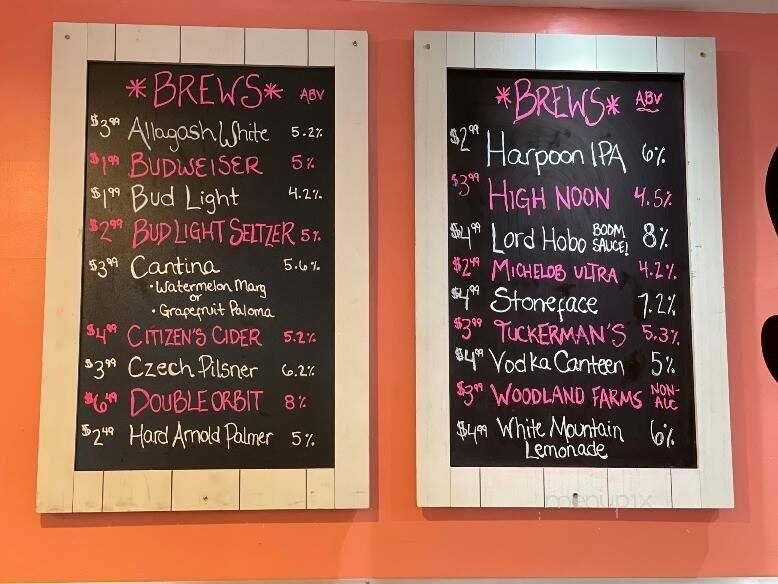 *BREWS* ABV
$3.99 Allagash White 5.2%
$1.99 BUDWEISER 5%
$1.99 Bud Light 4.2%
$2.99 BUD LIGHT SELTZER 5%
$3.99 Cantina 5.6%
• Watermelon Marg
or
• Grapefruit Paloma
$4.99 CITIZEN'S CIDER 5.2%
$3.99 Czech Pilsner 6.2%
$6.49 DOUBLE ORBIT 8%
$2.49 Hard Arnold Palmer 5%
*BREWS* ABV
$2.99 Harpoon IPA 6%
$3.99 HIGH NOON 4.5%
$4.99 Lord Hobo BOOM SAUCE! 8%
$2.49 MICHELOB ULTRA 4.2%
$4.99 Stoneface 7.2%
$3.99 TUCKERMAN'S 5.3%
$4.99 Vodka Canteen 5%
$3.99 WOODLAND FARMS NON-ALC
$4.99 White Mountain 6%
Lemonade
menupix